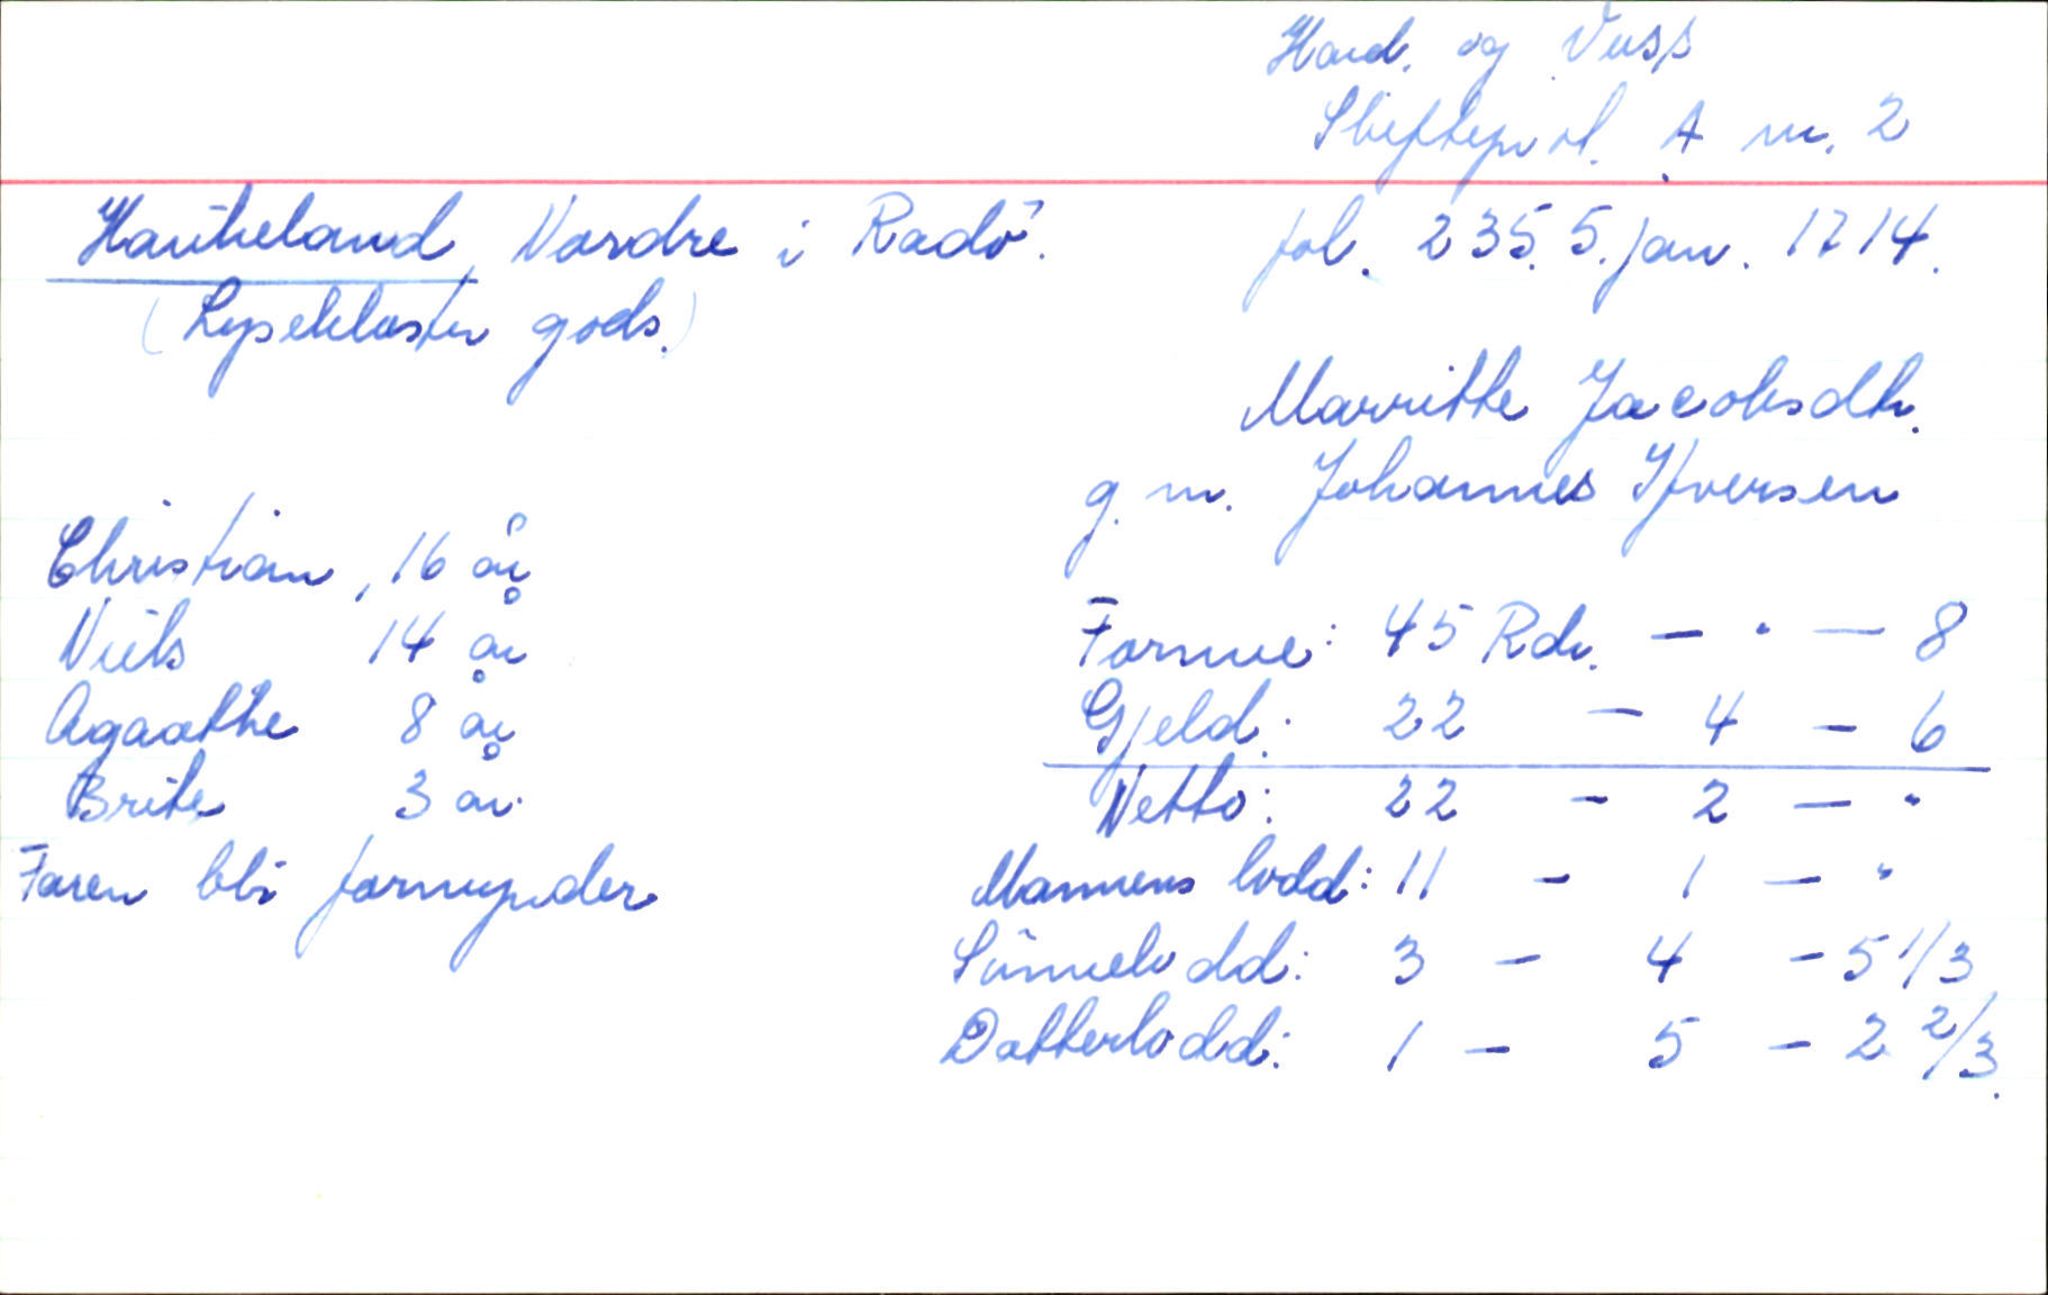 Hard. og Voss
Skifteprot. A nr. 2
Haukeland, Nordre i Radö. fol. 235. 5. jan. 1714.
(Lysekloster gods.)
Marritte Jacobsdtr.
g. m. Johannes Ifversen
Christian, 16 år
Niels 14 år
Agaathe 8 år
Brite 3 år.
Faren bli formynder
Formue: 45 Rdr. - " - 8
Gjeld: 22 - 4 - 6
Netto: 22 - 2 - "
Mannens lodd: 11 - 1 - "
Sönnelodd: 3 - 4 - 5 1/3
Datterlodd: 1 - 5 - 2 2/3.